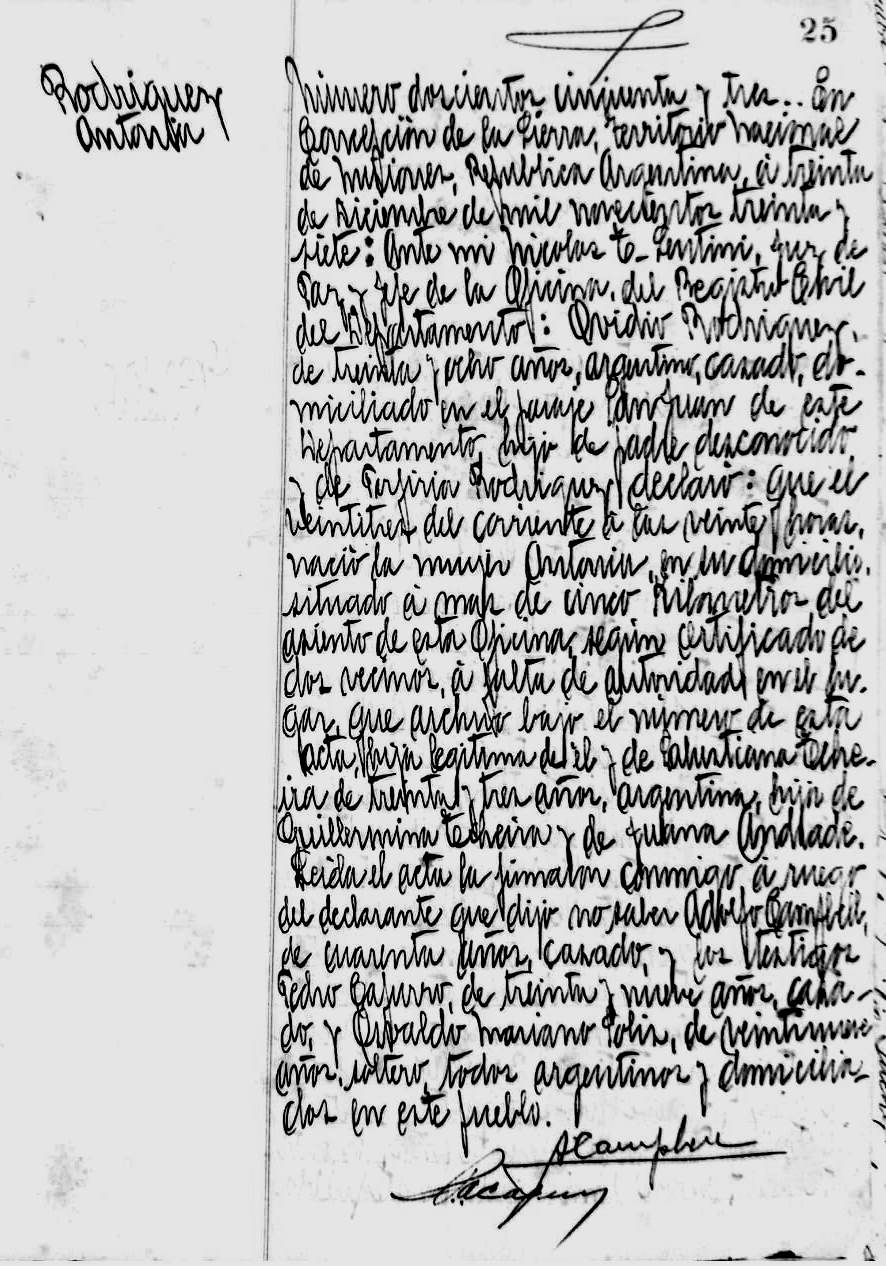 25
Rodriguez
Antonia
Número doscientos cinquenta y tres.. En
Concepción de la Sierra, Territorio Nacional
de Misiones, Republica Argentina, á treinta
de Diciembre de mil novecientos treinta y
siete: Ante mi Nicolas E. Gentini, Juez de
Paz y Jefe de la Oficina del Registro Civil
del Departamento: Ovidio Rodriguez,
de treinta y ocho años, argentino, casado, do-
miciliado en el paraje San Juan de este
Departamento, hijo de padre desconocido
y de Porfiria Rodriguez declaró: Que el
veintitres del corriente á las veinte horas,
nació la mujer Antonia, en su domicilio,
situado á mas de cinco Kilometros del
asiento de esta Oficina, según certificado de
dos vecinos, á falta de autoridad en el lu-
gar, que archivo bajo el número de esta
acta, hija legitima de él y de
de treinta y tres años, argentina, hija de
Guillermina y de Juana Andrade.
Leida el acta la firmaron conmigo á ruego
del declarante que dijo no saber Adolfo Campbell,
de cuarenta años, casado, y los testigos
Pedro de treinta y nueve años, casa-
do, y Osvaldo Mariano Solis, de veintinueve
años, soltero, todos argentinos y domicilia-
dos en este pueblo.
ACampbell